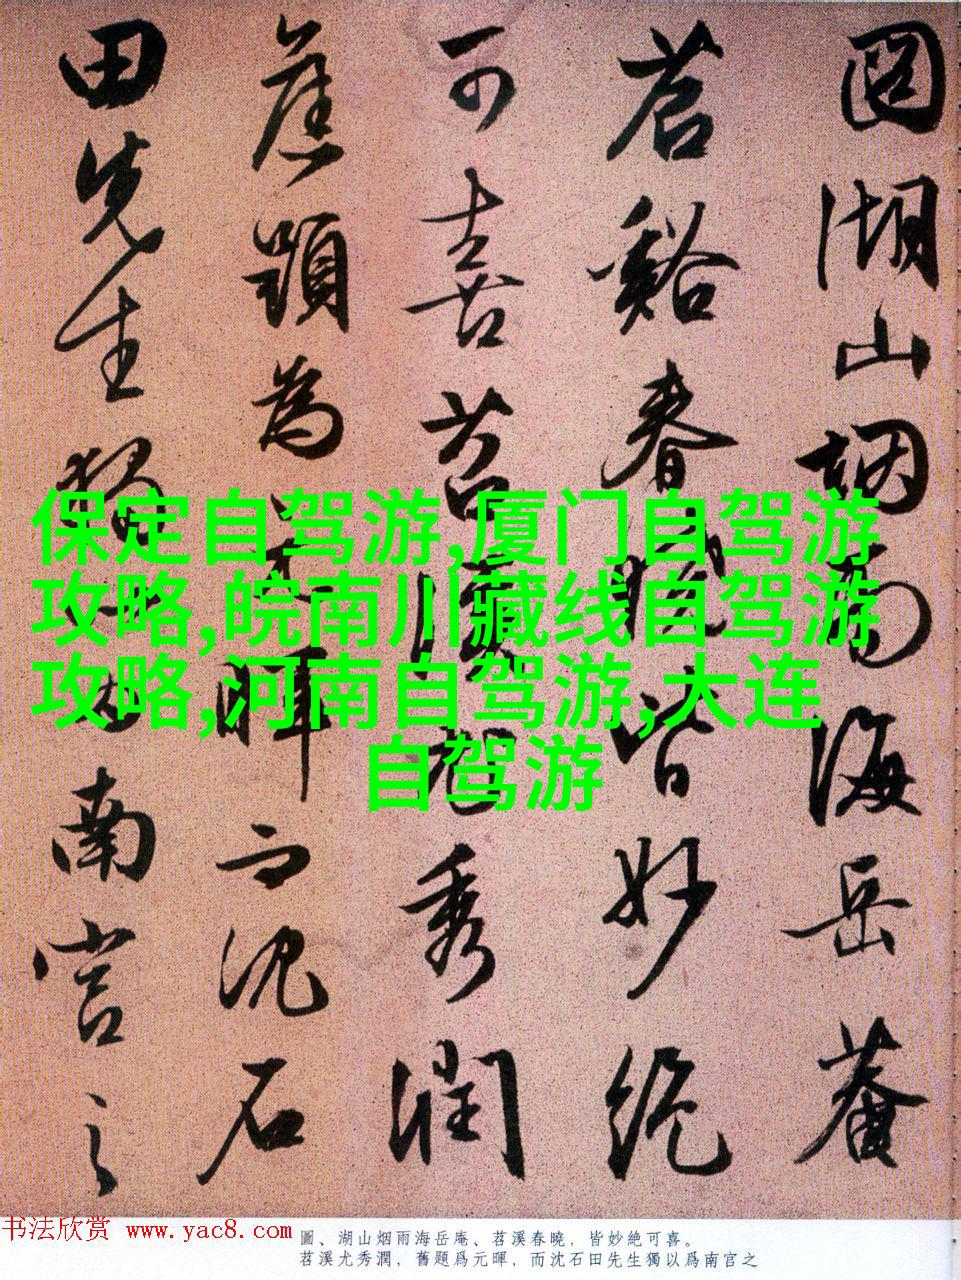 圖湖山烟雨海岳菴
苕谿春曉皆妙絶
可喜苕溪尤秀潤
舊題為元暉而沈石
田先生獨以為南宫之
保定自驾游,厦门自驾游
攻略,皖南川藏线自驾游
攻略,河南自驾游,大连
自驾游
书法欣赏 www.yac8.com
圖、湖山烟雨海岳庵、苕溪春曉，皆妙絶可喜。
苕溪尤秀潤，舊題爲元暉，而沈石田先生獨以爲南宫之